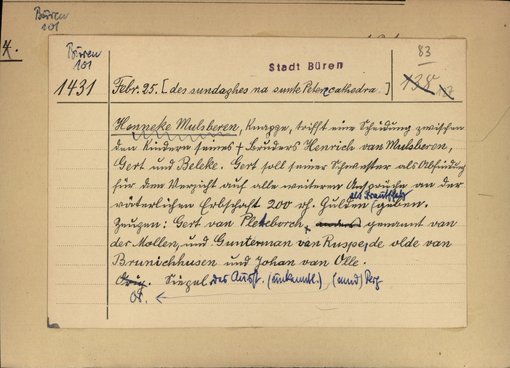 Büren
101
Büren
101
Stadt Büren
83
138 127
1431
Febr. 25. [des sundaghes na sunte Peters cathedra.]
Henneke Mulsberen, Knappe, trifft eine Scheidung zwischen
den Kindern seines † Bruders Henrich van Mulsberen,
Gert und Beleke. Gert soll seiner Schwester als Abfindung
für den Verzicht auf alle weiteren Ansprüche an der
väterlichen Erbschaft 200 rh. Gulden als Brautschatz geben.
Zeugen: Gert van Pletborch, anders genannt van
der Mollen, und Gunterman van Ruspe, de olde van
Brunichhusen und Johan van Olle.
Orig. Siegel des Ausst. (unkenntl.), (rund)
Or.